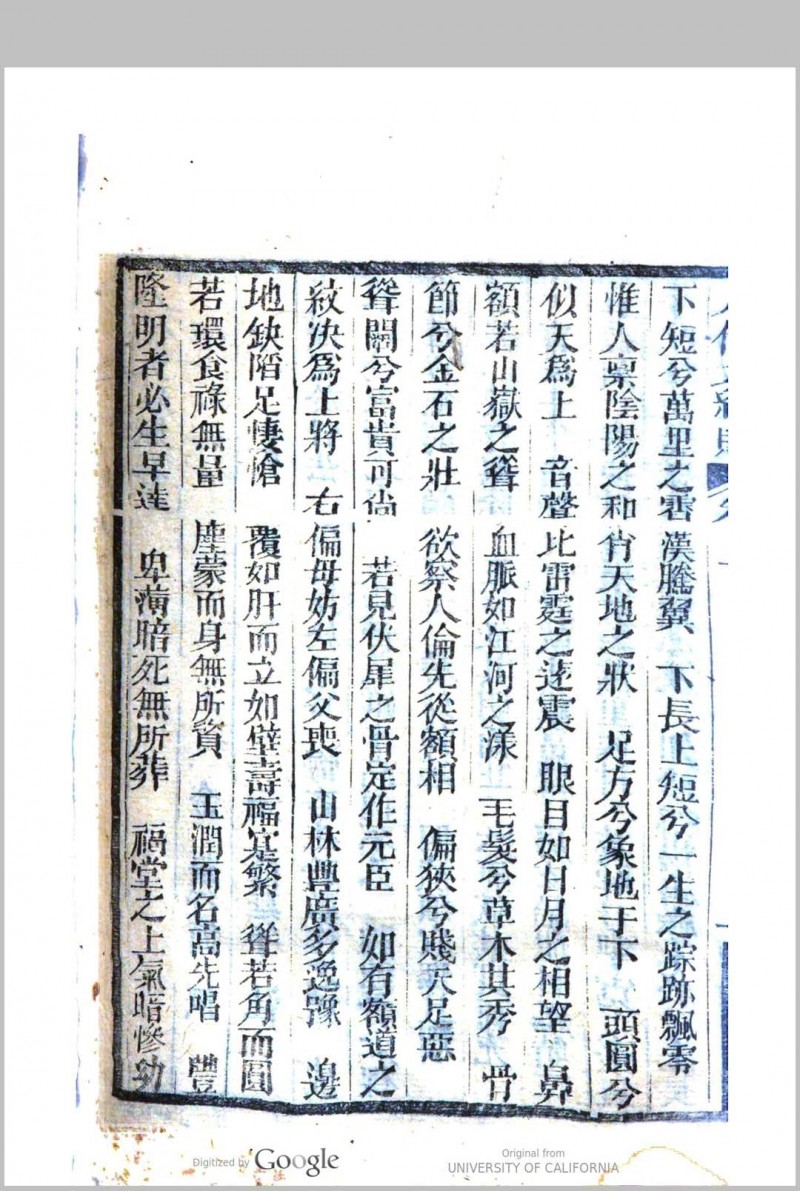 下短兮萬里之雲漢騰翼　下長上短兮一生之踪跡飄零
惟人禀陰陽之和肖天地之狀　足方兮象地于下　頭圓兮
似天爲上　音聲比雷霆之遠震　眼目如日月之相望　鼻
額若山嶽之聳　血脈如江河之漾　毛髮兮草木其秀　骨
節兮金石之壯　欲察人倫先從額相　偏狹兮賤夭足惡
聳闊兮富貴可尙　若見伏犀之骨定作元臣　如有額道之
紋决爲上將　右偏母妨左偏父喪　山林豐廣多逸豫　邊
地缺陷足悽愴　覆如肝而立如壁壽福寔繁　聳若角而圓
若環食祿無量　塵蒙而身無所資　玉潤而名高先唱　豐
隆明者必生早達　卑　暗死無所葬　福堂之上氣暗慘幼
Digitized by Google
Original from
UNIVERSITY OF CALIFORNIA